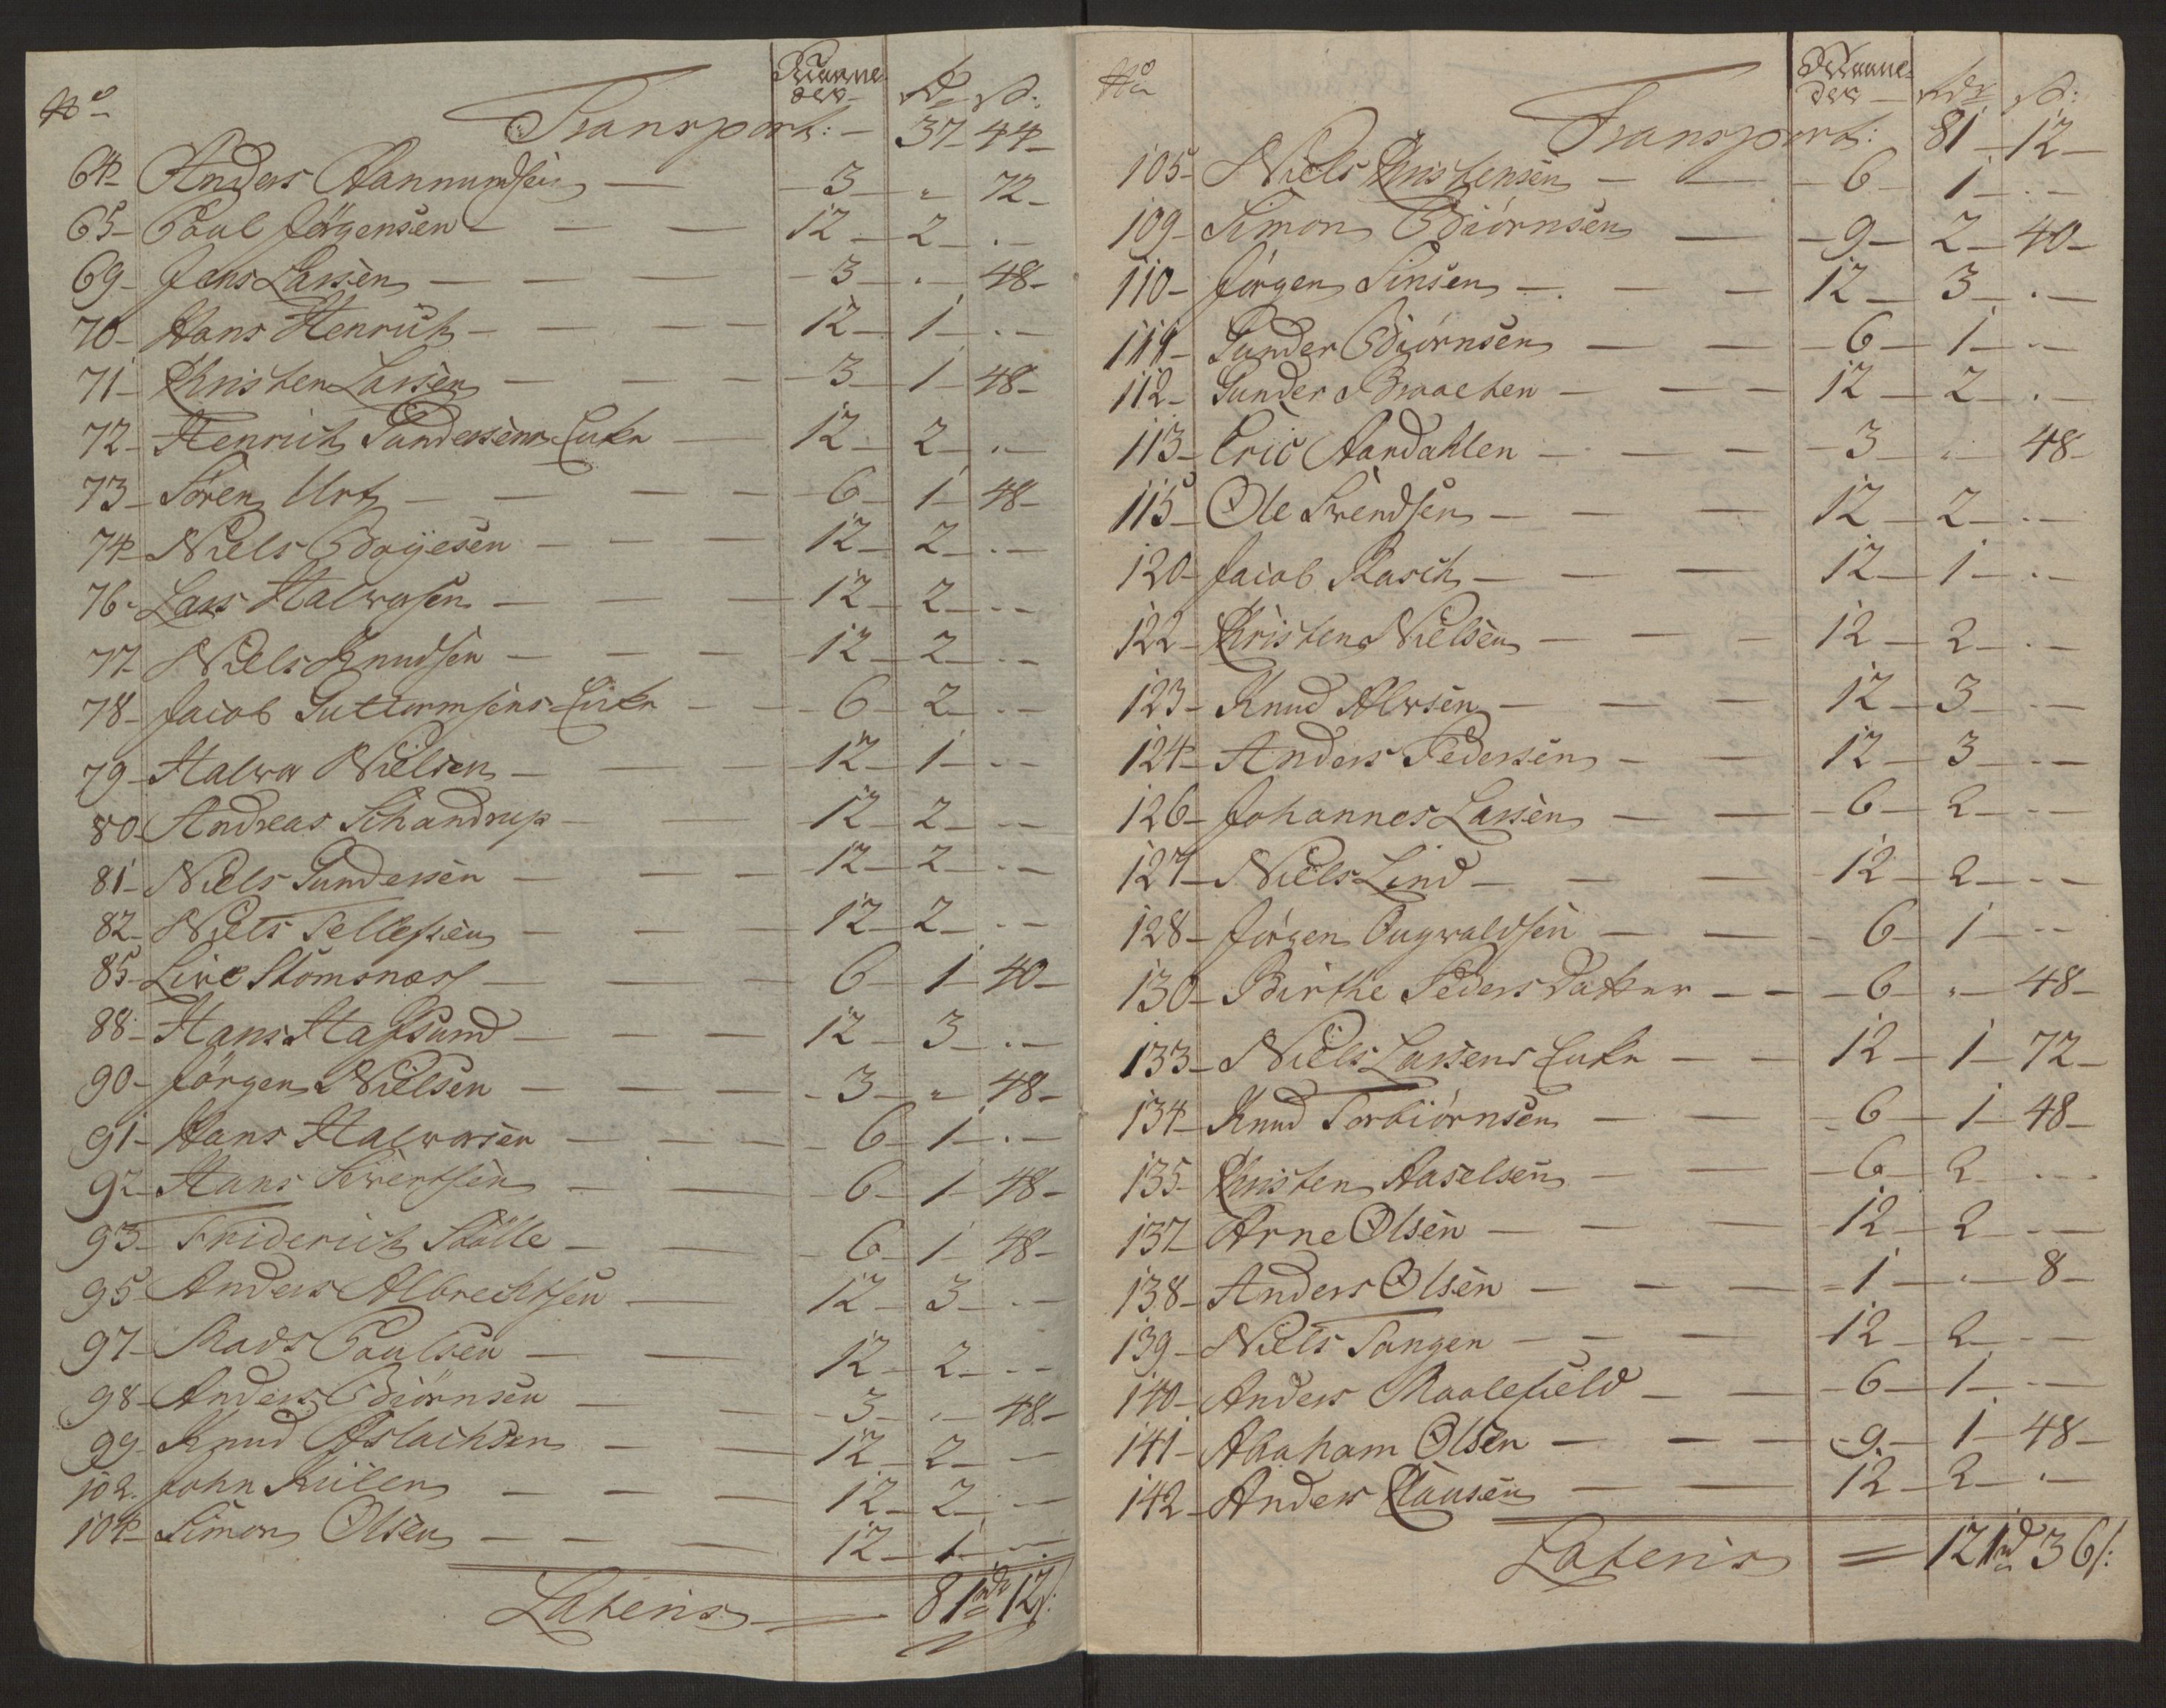 No
Maane
der
Rd ß:
Transport: — 37 — 44 —
64 — Anders Aanmundsen — 3 — " 72 —
65 — Poul Jörgensen — 12 — 2 — . —
69 — Jens Larsen — 3 — . — 48 —
70 — Hans Henrich — 12 — 1 — . —
71 — Christen Larsen — 3 — 1 — 48 —
72 — Henrich Gundersens Enke — 12 — 2 — . —
73 — Sören Urt — 6 — 1 — 48 —
74 — Niels Boyesen — 12 — 2 — . —
76 — Lars Halvorsen — 12 — 2 — . —
77 — Niels Knudsen — 12 — 2 — . —
78 — Jacob Guttormsens Enke — 6 — 2 — . —
79 — Halvor Nielsen — 12 — 1 — . —
80 — Andreas Schandrup — 12 — 2 — . —
81 — Niels Gundersen — 12 — 2 — . —
82 — Niels Tellefsen — 12 — 2 — . —
85 — Live Stomsnæss — 6 — 1 — 40 —
88 — Hans Hafsund — 12 — 3 — . —
90 — Jörgen Nielsen — 3 — " — 48 —
91 — Hans Halvorsen — 6 — 1 — . —
92 — Hans Sivertsen — 6 — 1 — 48 —
93 — Friderich Stölle — 6 — 1 — 48 —
95 — Anders Albrechtsen — 12 — 3 — . —
97 — Mads Poulsen — 12 — 2 — . —
98 — Anders Biörnsen — 3 — . — 48 —
99 — Knud Aslachsen — 12 — 2 — —
102. John Kiilen — 12 — 2 — . —
104 — Simon Olsen — 12 — 1 — . —
Lateris — 81 rd 12 ß:
No
Maane
der — rdr ß:
Transport: 81 — 12 —
105 — Niels Christensen — 6 — 1 — . —
109 — Simon Biörnsen — 9 — 2 — 40 —
110 — Jörgen Sinsen — 12 — 3 — . —
111 — Gunder Biörnsen — 6 — 1 — . —
112 — Gunder Braaten — 12 — 2 — . —
113 — Eric Aardahlen — 3 — . 48 —
115 — Ole Svendsen — 12 — 2 — . —
120 — Jacob Rasch — 12 — 1 — . —
122 — Christen Nielsen — 12 — 2 — . —
123 — Knud Alvsen — 12 — 3 — . —
124 — Anders Pedersen — 12 — 3 — . —
126 — Johannes Larsen — 6 — 2 — . —
127 — Niels Lind — 12 — 2 — . —
128 — Jörgen Ougvaldsen — 6 — 1 — . —
130 — Birthe Peders Datter — 6 — " — 48 —
133 — Niels Larsens Enke — 12 — 1 — 72 —
134 — Knud Torbiörnsen — 6 — 1 — 48 —
135 — Christen Aaselsen — 6 — 2 . . —
137 — Arne Olsen — 12 — 2 — . —
138 — Anders Olsen — 1 — . — 8 —
139 — Niels Tangen — 12 — 2 — . —
140 — Anders Maalefield — 6 — 1 — . —
141 — Abraham Olsen — 9 — 1 — 48 —
142 — Anders Clausen — 12 — 2 — . —
Lateris = 121 rd 36 ß: